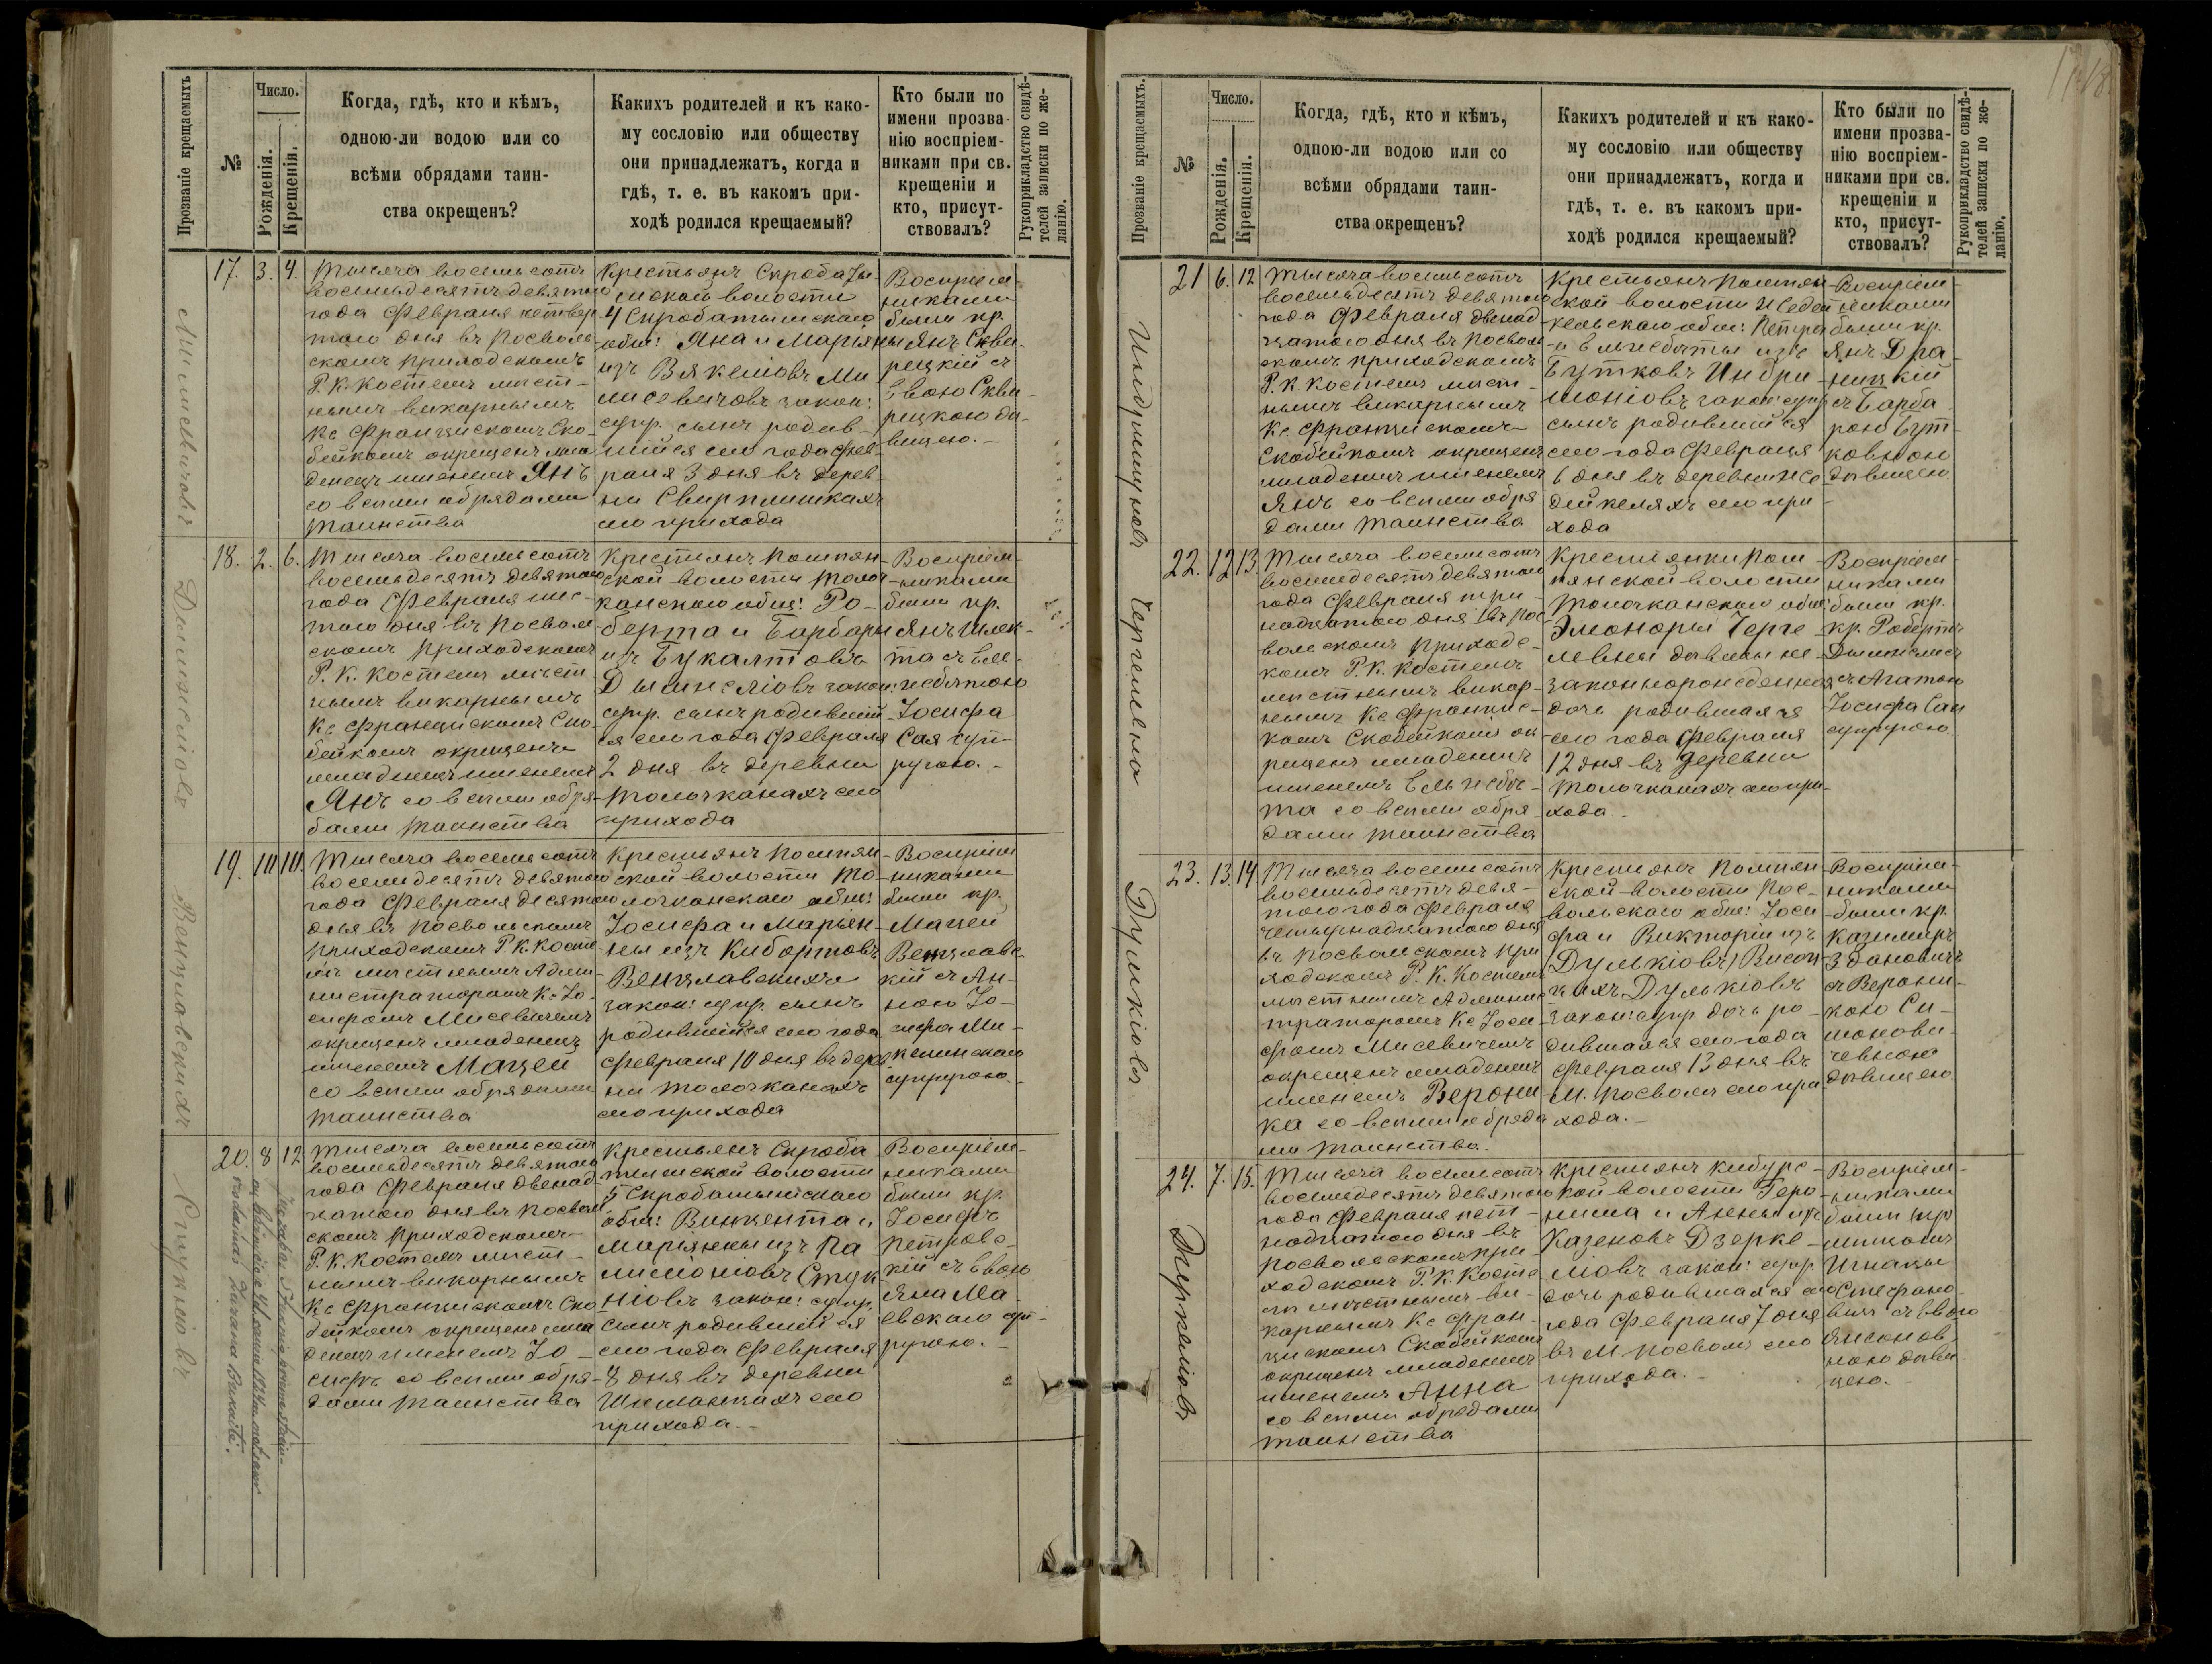 118
Прозваніе крещаемыхъ
№
Число.
Рожденія.
Крещенія.
Когда, гдѣ, кто и кѣмъ,
одною-ли водою или со
всѣми обрядами таин-
ства окрещенъ?
Какихъ родителей и къ како-
му сословію или обществу
они принадлежатъ, когда и
гдѣ, т. е. въ какомъ при-
ходѣ родился крещаемый?
Кто были по
имени прозва-
нію воспріем-
никами при св.
крещеніи и
кто, присут-
ствовалъ?
Рукоприкладство свидѣ-
телей записки по же-
ланію.
17.
3.
4.
Тысяча восемьсотъ
восемьдесятъ девятаго
года Февраля четвер-
таго дня въ Посволь-
скомъ приходскомъ
Р. К. Костелѣ мѣст-
нымъ викарнымъ
Кс Францискомъ Ско-
бейкомъ окрещенъ мла
денецъ именемъ Янъ
со всѣми обрядами
таинства
Крестьянъ Скробаты-
шской волости
4 Скробатышскаго
общ: Яна и Марьян
ны изъ
супр. сынъ родив-
шійся сего года Фев-
раля 3 дня въ дерев-
ни Свирплишкахъ
сего прихода
Воспріем-
никами
были кр.
Янъ Скви-
рецкій съ
Евою Скви-
рецкою дѣ-
вицею.
18.
2.
6.
Тысяча восемьсотъ
восемьдесятъ девятаго
года Февраля шес-
таго дня въ Посволь
скомъ приходскомъ
Р. К. Костелѣ мѣст
нымъ викарнымъ
Кс Францискомъ Ско-
бейкомъ окрещенъ
младенецъ именемъ
Янъ со всѣми обря-
дами таинства
Крестьянъ Помпян-
ской волости Толоч
канскаго общ: Ро-
берта и Барбары
изъ Букалтовъ
закон:
супр. сынъ родивш-
ся сего года Февраля
2 дня въ деревни
Толочканахъ сего
прихода
Воспріем-
никами
были кр.
Янъ
та съ Ель-
жебѣтою
Іосифа
суп-
ругою.
19.
10
10.
Тысяча восемьсотъ
восемьдесятъ девятаго
года Февраля десятаго
дня въ Посвольскомъ
приходскомъ Р. К. Косте
лѣ мѣстнымъ Адми-
нистраторомъ Кс Іо-
сифомъ Мисевичемъ
окрещенъ младенецъ
именемъ Мацей
со всѣми обрядами
таинства
Крестьянъ Помпян-
ской волости То-
лочканскаго общ:
Іосифа и Марьян-
ны изъ Кибортовъ
Венцлавскихъ
закон: супр. сынъ
родившійся сего года
Февраля 10 дня въ дерев
ни Толочканахъ
сего прихода
Воспріем
никами
были кр.
Мацей
Венцлавс-
кій съ Ан-
ною Іо-
сифа
супругою.
Венцлавскихъ
20.
8
12
Тысяча восемьсотъ
восемьдесятъ девятаго
года Февраля двенад-
цатаго дня въ Посволь
скомъ приходскомъ
Р. К. Костелѣ мѣст-
нымъ викарнымъ
Кс Францискомъ Ско
бейкомъ окрещенъ мла
денецъ именемъ Іо-
сифъ со всѣми обря-
дами таинства
Крестьянъ Скроба
тышской волости
5 Скробатышскаго
общ: Винцента и
Марьянны изъ
закон: супр.
сынъ родившійся
сего года Февраля
8 дня въ деревни
сего
прихода.
Воспріем-
никами
были кр.
Іосифъ
Петровс-
кій съ Евою
Яна Ма-
евскаго суп-
ругою.
Прозваніе крещаемыхъ.
№
Число.
Рожденія.
Крещенія.
Когда, гдѣ, кто и кѣмъ,
одною-ли водою или со
всѣми обрядами таин-
ства окрещенъ?
Какихъ родителей и къ како-
му сословію или обществу
они принадлежатъ, когда и
гдѣ, т. е. въ какомъ при-
ходѣ родился крещаемый?
Кто были по
имени прозва-
нію воспріем-
никами при св.
крещеніи и
кто, присут-
ствовалъ?
Рукоприкладство свидѣ-
телей записки по же-
ланію.
21
6.
12
Тысяча восемьсотъ
восемьдесятъ девятаго
года Февраля двенад
цатаго дня въ Посволь
скомъ приходскомъ
Р. К. Костелѣ мѣст-
нымъ викарнымъ
Кс Францискомъ
Скобейкомъ окрещенъ
младенецъ именемъ
Янъ со всѣми обря
дами таинства
Крестьянъ Помпян
ской волости
общ: Петра
и Ельжебѣты изъ
Бутковъ
закон: супр
сынъ родившійся
сего года Февраля
6 дня въ деревни
сего при-
хода
Воспріем-
никами
были кр.
Янъ Дра-
ницкій
съ Барба
рою Бут-
ковною
дѣвицею
22.
12
13.
Тысяча восемьсотъ
восемьдесятъ девятаго
года Февраля три-
надцатаго дня въ Пос
вольскомъ приходс-
комъ Р. К. Костелѣ
мѣстнымъ викар-
нымъ Кс Францис-
комъ Скобейкомъ ок-
рещенъ младенецъ
именемъ Ельжебѣ-
та со всѣми обря-
дами таинства
Крестьянки Пом
пянской волости
Толочканскаго общ:
Элоноры Черге
левны дѣвицы не-
законнорожденная
дочь родившаяся
сего года Февраля
12 дня въ деревни
Толочканахъ сего при-
хода.
Воспріем-
никами
были кр.
кр. Робертъ
съ Агатою
Іосифа
супругою.
23.
13.
14
Тысяча восемьсотъ
восемьдесятъ девя-
таго года Февраля
четырнадцатаго дня
въ Посвольскомъ при
ходскомъ Р. К. Костелѣ
мѣстнымъ Админис
траторомъ Кс Іоси
фомъ Мисевичемъ
окрещенъ младенецъ
именемъ Верони
ка со всѣми обряда
ми таинства.
Крестьянъ Помпян
ской волости Пос-
вольскаго общ: Іоси
фа и Викторіи изъ
Дулькіовъ
закон: супр дочь ро-
дившаяся сего года
Февраля 13 дня въ
м. Посволѣ сего при
хода.
Воспріем-
никами
были кр.
Казимиръ
Здановичъ
съ Верони-
кою Си-
монови-
чевною
дѣвицею
24.
7.
15.
Тысяча восемьсотъ
восемьдесятъ девятаго
года Февраля пят-
надцатаго дня въ
Посвольскомъ при-
ходскомъ Р. К. Косте
лѣ мѣстнымъ ви-
карнымъ Кс Фран-
цискомъ Скобейкомъ
окрещенъ младенецъ
именемъ Анна
со всѣми обрядами
таинства
Крестьянъ Кибурс-
кой волости Геро-
нима и Анны изъ
закон: супр
дочь родившаяся сего
года Февраля 7 дня
въ м Посволѣ сего
прихода.
Воспріем-
никами
были
Игнацы
Стефано-
вичъ съ Евою
ною дѣви
цею.